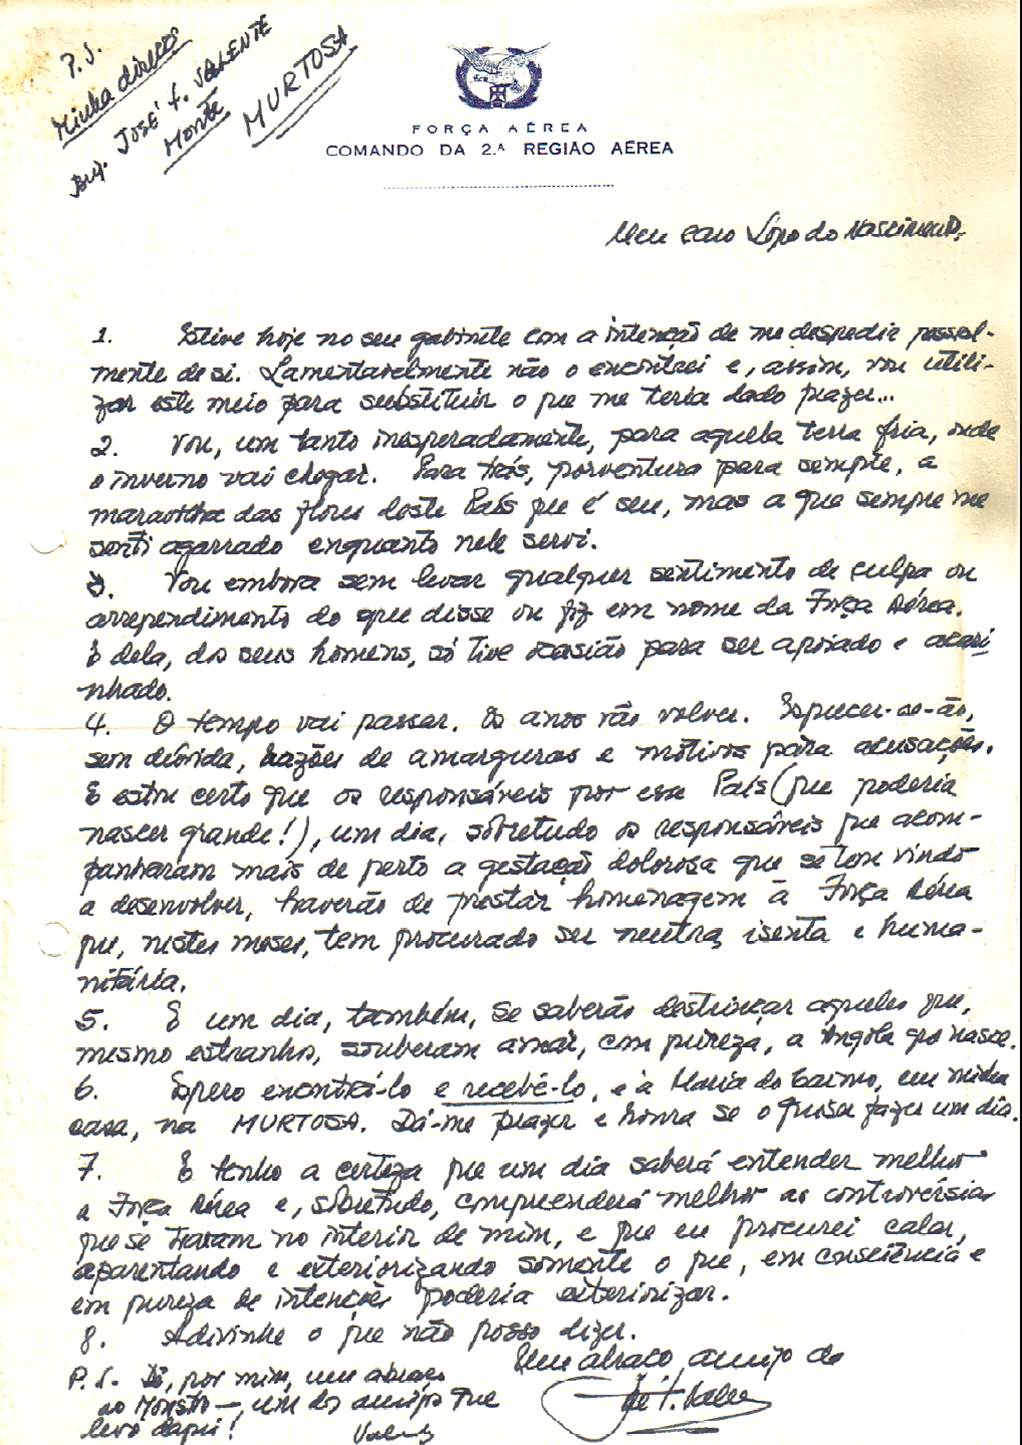 P.S.
Minha direcção
Brig. JOSÉ F. VALENTE
MONTE
MURTOSA
FORÇA AÉREA
COMANDO DA 2.ª REGIÃO AÉREA
Meu caro Lopo do Nascimento,
1. Estive hoje no seu gabinete com a intenção de me despedir pessoal-
mente de si. Lamentavelmente não o encontrei e, assim, vou utili-
zar este meio para substituir o que me teria dado prazer...
2. Vou, um tanto inesperadamente, para aquela terra fria, onde
o inverno vai chegar. Para trás, porventura para sempre, a
maravilha das flores deste País que é seu, mas a que sempre me
senti agarrado enquanto nele servi.
3. Vou embora sem levar qualquer sentimento de culpa ou
arrependimento do que disse ou fiz em nome da Força Aérea.
E dela, dos seus homens, só tive ocasião para ser apoiado e acari
nhado.
4. O tempo vai passar. Os anos vão volver. Esquecer-se-ão,
sem dúvida, razões de amarguras e motivos para acusações.
E estou certo que os responsáveis por esse País (que poderia
nascer grande!), um dia, sobretudo os responsáveis que acom-
panharam mais de perto a gestação dolorosa que se tem vindo
a desenvolver, haverão de prestar homenagem à Força Aérea
que, nestes meses, tem procurado ser neutra, isenta e huma-
nitária.
5. E um dia, também, se saberão destrinçar aqueles que,
mesmo estranhos, souberam amar, com pureza, a Angola que nasce.
6. Espero encontrá-lo e recebê-lo, e à Maria do Carmo, em minha
casa, na MURTOSA. Dá-me prazer e honra se o quiser fazer um dia.
7. E tenho a certeza que um dia saberá entender melhor
a Força Aérea e, sobretudo, compreenderá melhor as controvérsias
que se travam no interior de mim, e que eu procurei calar,
aparentando e exteriorizando somente o que, em consciência e
em pureza de intenções poderia exteriorizar.
8. Adivinhe o que não posso dizer.
Um abraço amigo do
José F. Valente
P.S. Dê, por mim, um abraço
ao —, um dos amigos que
levo daqui!